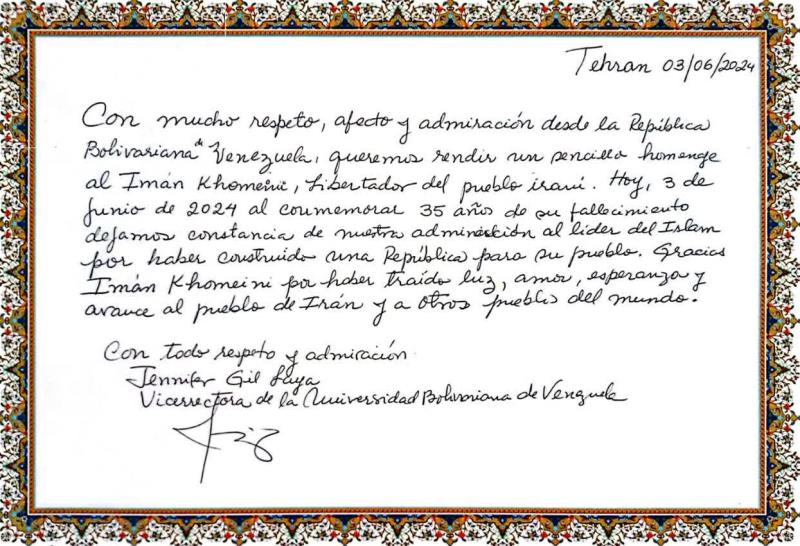 Tehran 03/06/2024
Con mucho respeto, afecto y admiración desde la República
Bolivariana de Venezuela, queremos rendir un sencillo homenge
al Imán Khomeini, Libertador del pueblo iraní. Hoy, 3 de
Junio de 2024 al conmemorar 35 años de su fallecimiento
dejamos constancia de nuestra admiración al lider del Islam
por haber construido una República para su pueblo. Gracias
Imán Khomeini por haber traído luz, amor, esperanza y
avance al pueblo de Irán y a otros pueblos del mundo.
Con todo respeto y admiración
Jennifer Gil Laya
Vicerrectora de la Universidad Bolivariana de Venezuela